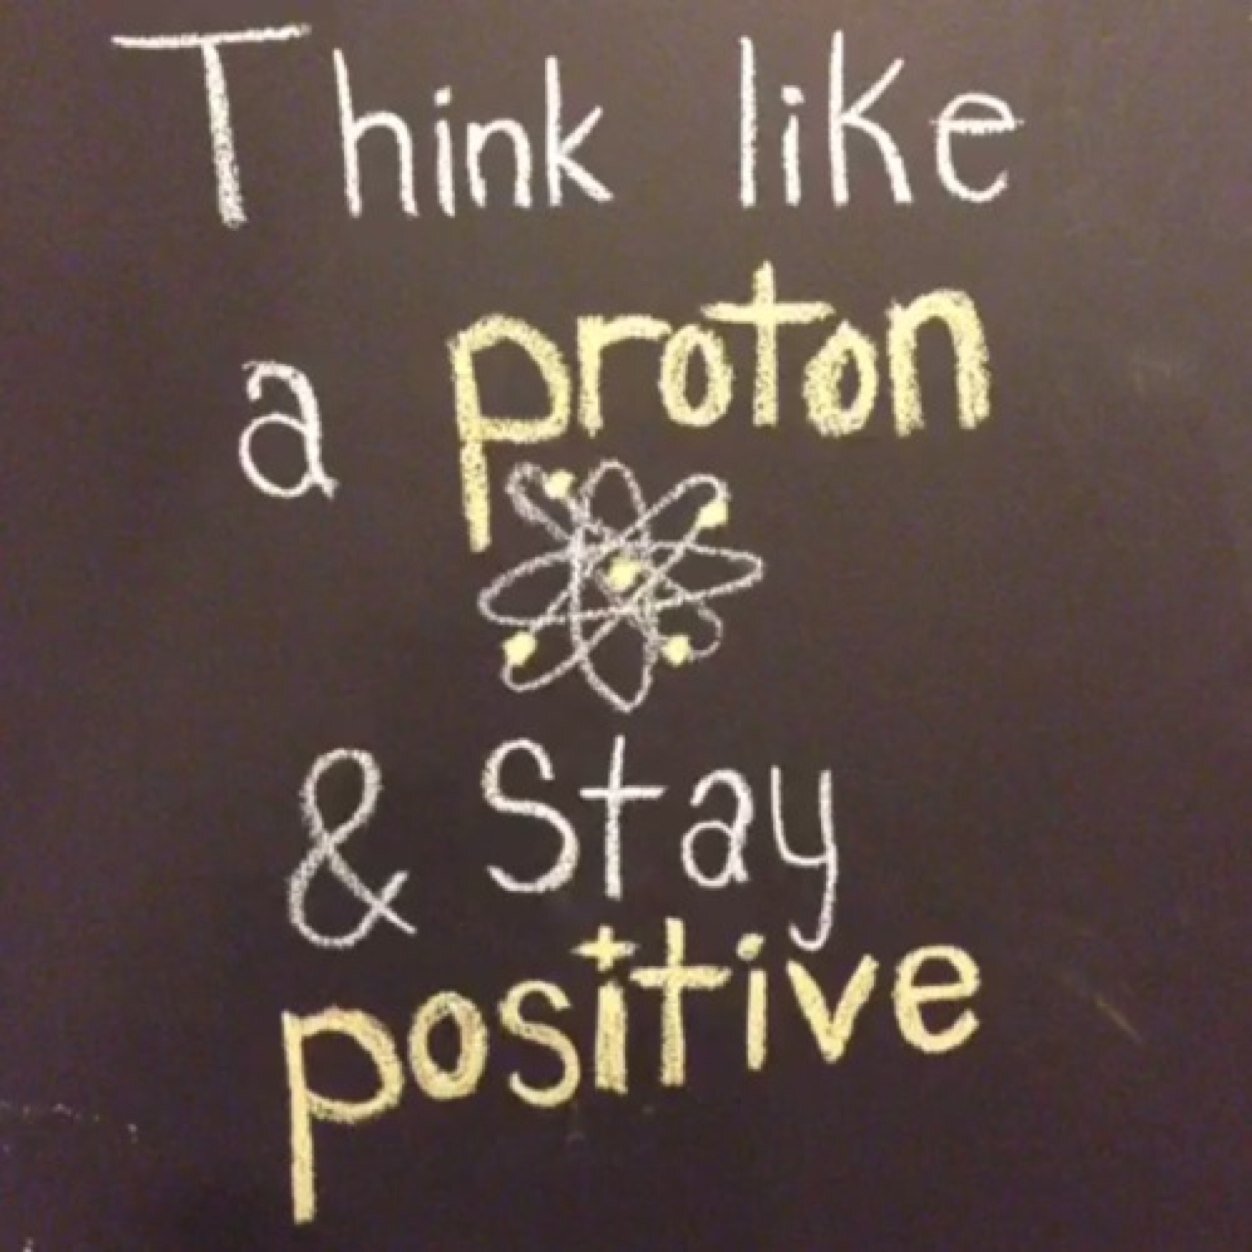 Think like
a proton
& Stay
positive